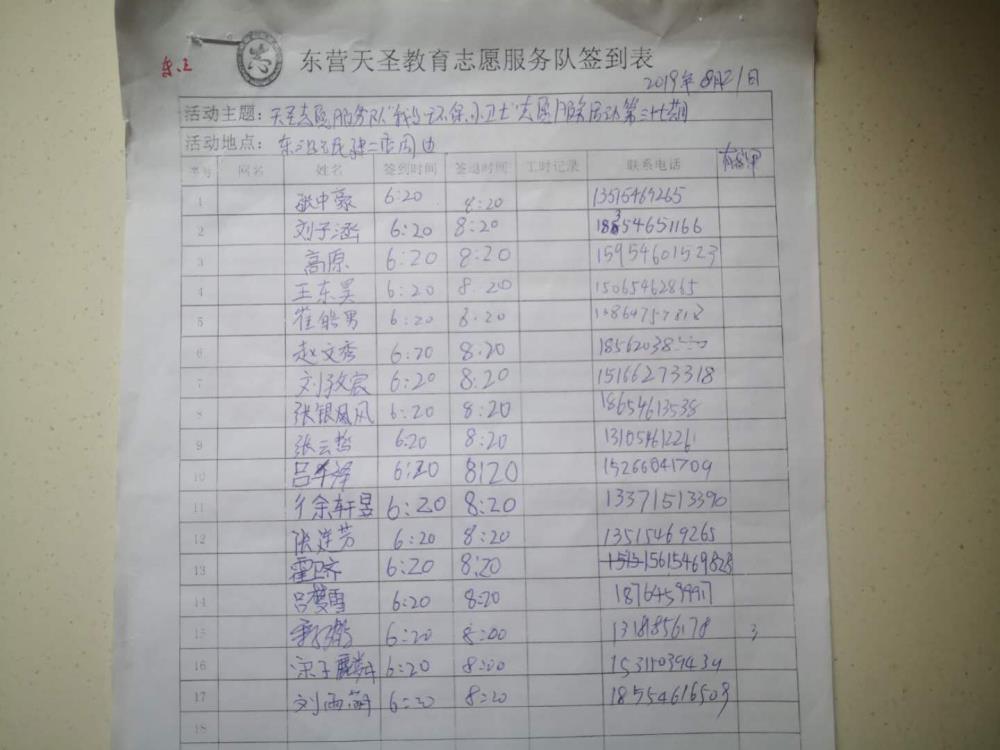 东营天圣教育志愿服务队签到表
2019年8月21日
活动主题: 天圣志愿服务队"我为环保小卫士"志愿服务活动第三十期
活动地点:
序号 网名 姓名 签到时间 签退时间 工时记录 联系电话
1 张中豪 6:20 8:20 13515469265
2 刘子涵 6:20 8:20 18354651166
3 高原 6:20 8:20 15954601523
4 王东昊 6:20 8:20 15065462865
5 崔皓男 6:20 8:20
6 赵文秀 6:20 8:20 18562038
7 刘孜宸 6:20 8:20 15166273318
8 张银凤 6:20 8:20 18654613538
9 张云哲 6:20 8:20 13105461226
10 吕 泽 6:20 8:20 15266041709
11 徐轩昱 6:20 8:20 13371513390
12 张连芳 6:20 8:20 13515469265
13 霍 6:20 8:20 15615469828
14 吕梦雪 6:20 8:20 18764599917
15 6:20 8:00 13181856178
16 宗子麒 6:20 8:00 15311039439
17 刘雨 6:20 8:20 18554616509
18